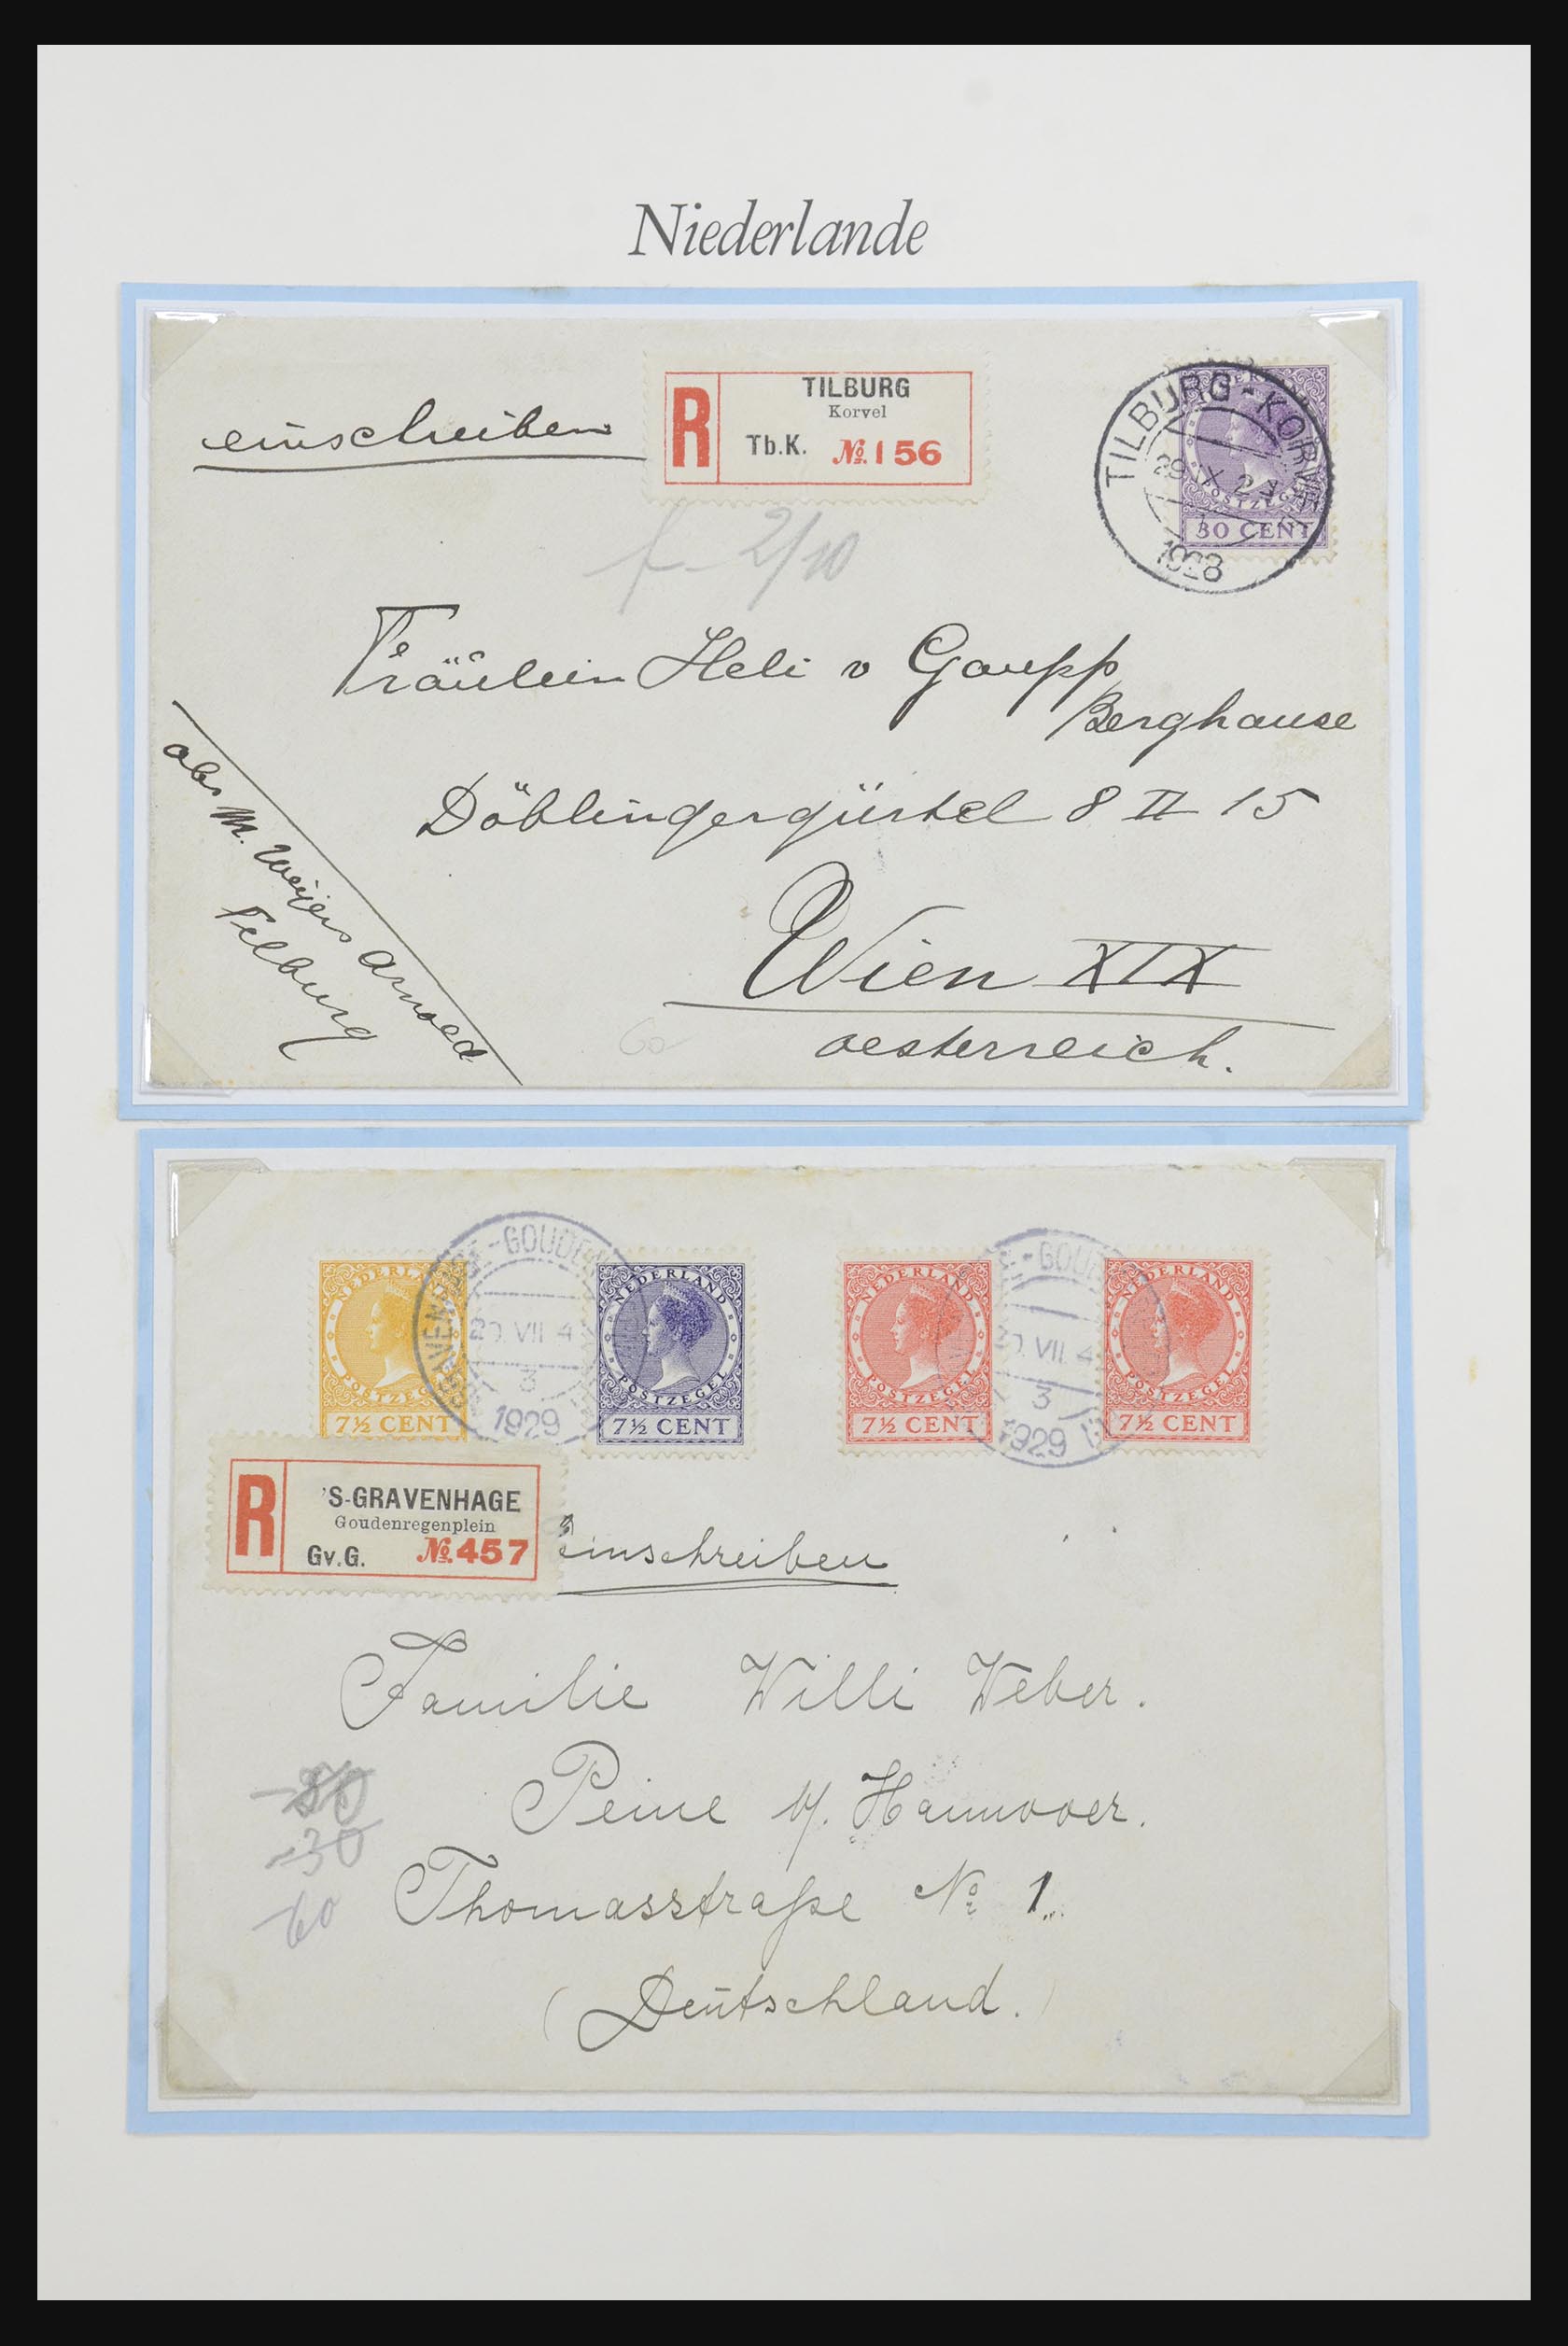 Niederlande
einschreiben
R
TILBURG
Korvel
Tb.K. №. 156
TILBURG-KORVEL
29 X 2
1928
POSTZEGEL
30 CENT
f 2/10
Fräulein Heli v Gaupp
Berghause
Döblingergürtel 8 II 15
Wien XIX
oesterreich.
abs M. Weijers Arnold
Tilburg
60
'S-GRAVENHAGE-GOUDEN
20 VII 4
3
1929
NEDERLAND
POSTZEGEL
7½ CENT
NEDERLAND
POSTZEGEL
7½ CENT
NEDERLAND
POSTZEGEL
7½ CENT
E-GOU
20 VII 4
3
1929
NEDERLAND
POSTZEGEL
7½ CENT
R
'S-GRAVENHAGE
Goudenregenplein
Gv.G. №. 457
einschreiben
Familie Willi Weber.
Peine b/. Hannover.
-30
60
Thomasstraße No 1.
(Deutschland.)